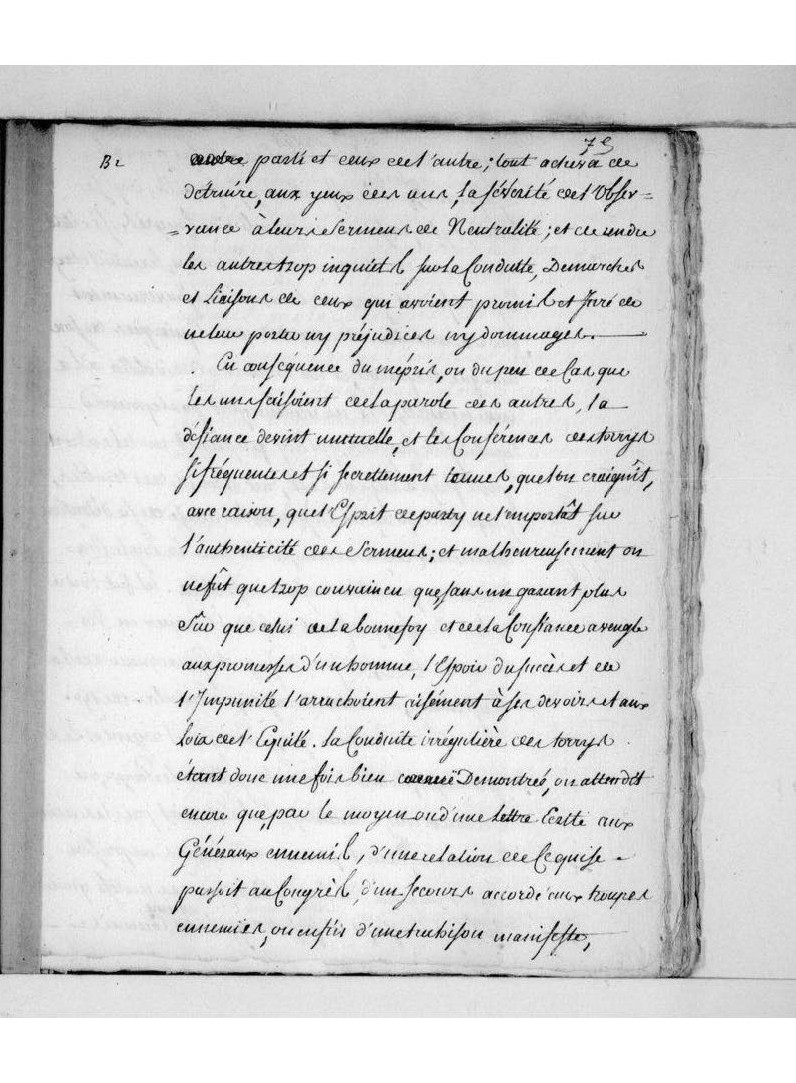 7e
B2
parti et ceux de l'autre; tout acheva de
détruire, aux yeux des uns, la sévérité de l'obser=
=vance à leurs Sermens de Neutralité; et de rendre
les autres trop inquiets sur la Conduitte, Demarches
et Liaisons de ceux qui avoient promis et Juré de
ne leur porter ny préjudices ny dommages.
En conséquence du mépris, ou du peu de Cas que
les uns faisoient de la parole des autres, la
défiance devint mutuelle, et les Conférences des torrys
si fréquentes et si secrettement tenues, que l'on craignît,
avec raison, que l'Esprit de party ne l'emportât sur
l'authenticité des Sermens; et malheureusement on
ne fût que trop convaincu que, sans un garant plus
sûr que celui de la bonne foy et de la Confiance aveugle
aux promesses d'un homme, l'Espoir du succès et de
l'Impunité l'arrachoient aisément à ses devoirs et aux
Loix de l'Equité. La Conduite irrégulière des torrys
étant donc une fois bien Demontrée, on attendit
encore que, par le moyen ou d'une Lettre Ecrite aux
Généraux ennemis, d'une relation de Ce qui se
passoit au Congrès, d'un secours accordé aux troupes
ennemies, ou enfin d'une trahison manifeste,